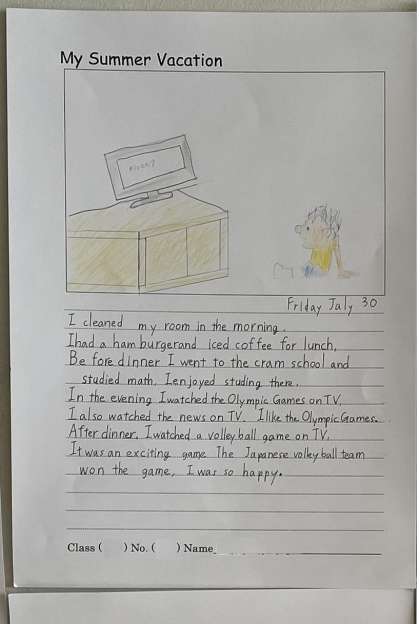 My Summer Vacation
Friday Jaly 30
I cleaned my room in the morning.
Ihad a hamburgerand iced coffee for lunch,
Before dinner I went to the cram school and
studied math. Ienjoyed studing there.
In the evening Iwatched the Olympic Games on TV.
I also watched the news on TV. Ilike the Olympic Games.
After dinner, Iwatched a volleyball game on TV.
It was an exciting game The Japanese volleyball team
won the game, I was so happy.
Class ( ) No. ( ) Name